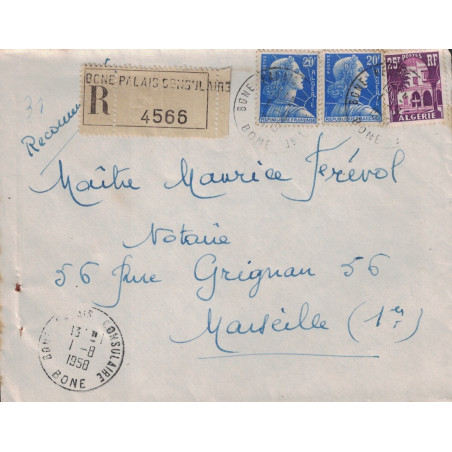 BONE PALAIS CONSULAIRE
R
4566
20F
20F
ALGERIE
REPUBLIQUE FRANCAISE
REPUBLIQUE FRANCAISE
POSTES
25F RF
ALGERIE
BONE
BONE
31
Maître Maurice Férévol
Notaire
56 Rue Grignan 56
Marseille (1er)
BONE PALAIS CONSULAIRE
13
1-8
1958
BONE